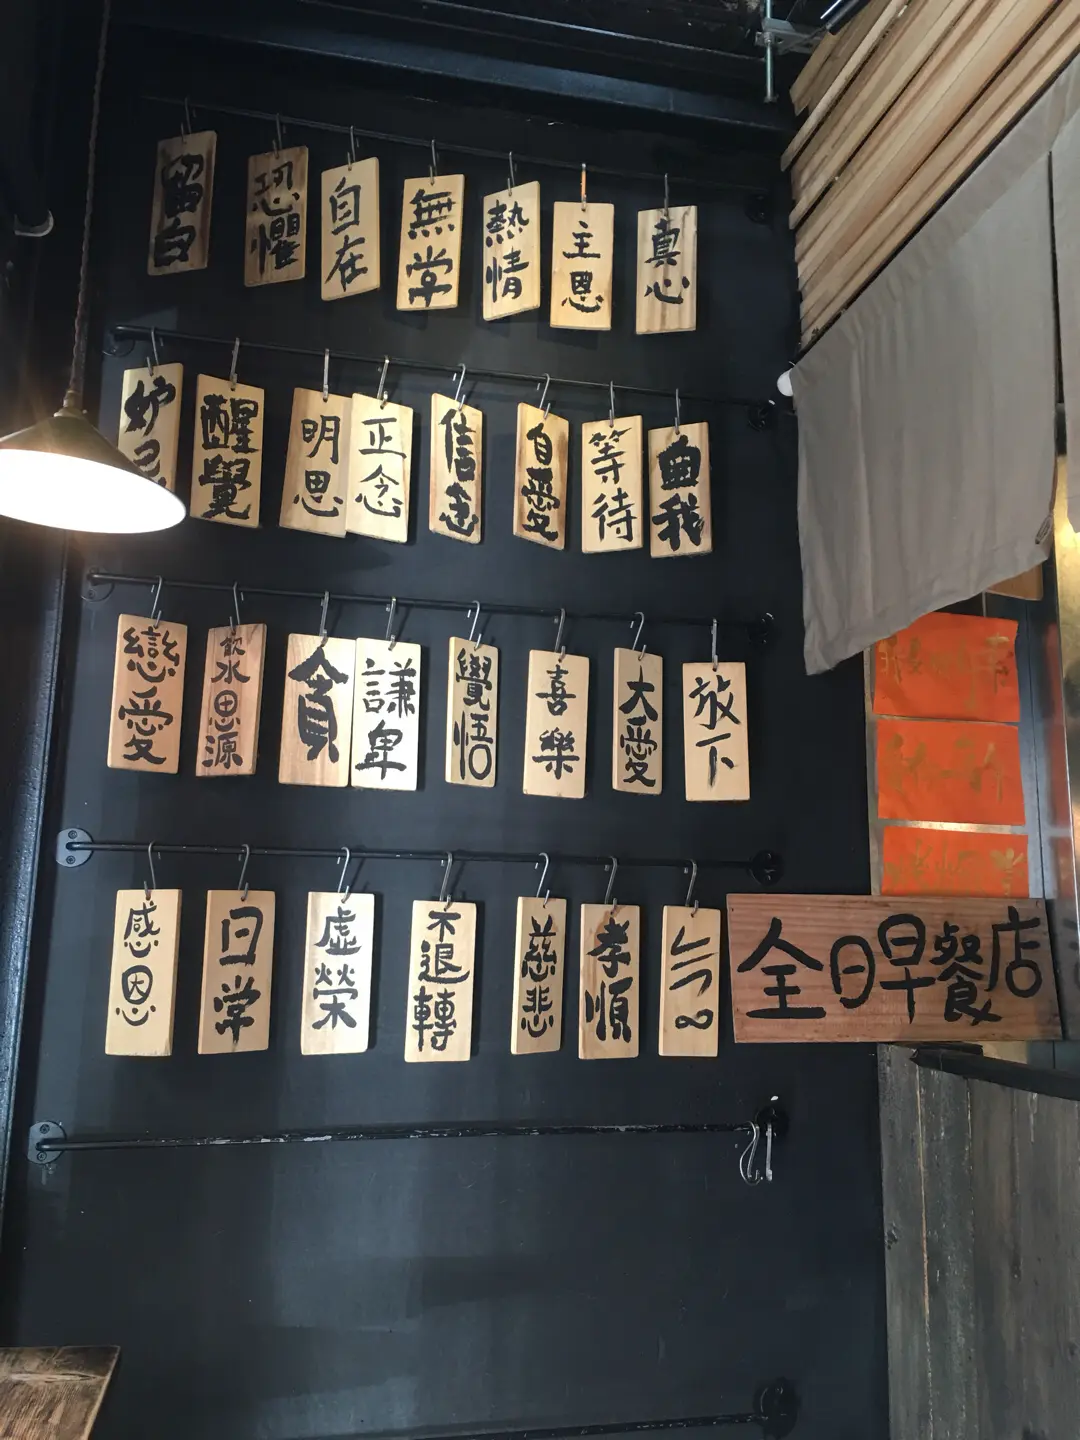 留白
恐懼
自在
無常
熱情
主恩
真心
妒忌
醒覺
明思
正念
信念
自愛
等待
自我
戀愛
飲水思源
貪
謙卑
覺悟
喜樂
大愛
放下
感恩
日常
虛榮
不退轉
慈悲
孝順
全日早餐店